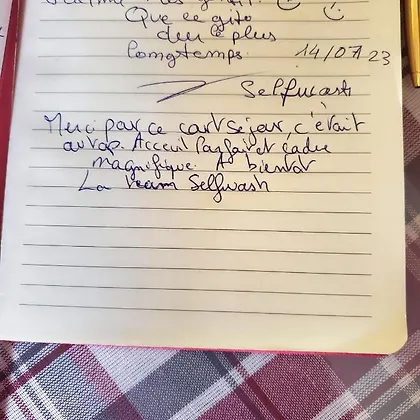 Que le gite
dur le plus
longtemps. 14/07 23
Selfwash
Merci par ce cart séjour, c'était
au top. Acceuil Parfait et cadre
magnifique. A bientot
La team Selfwash